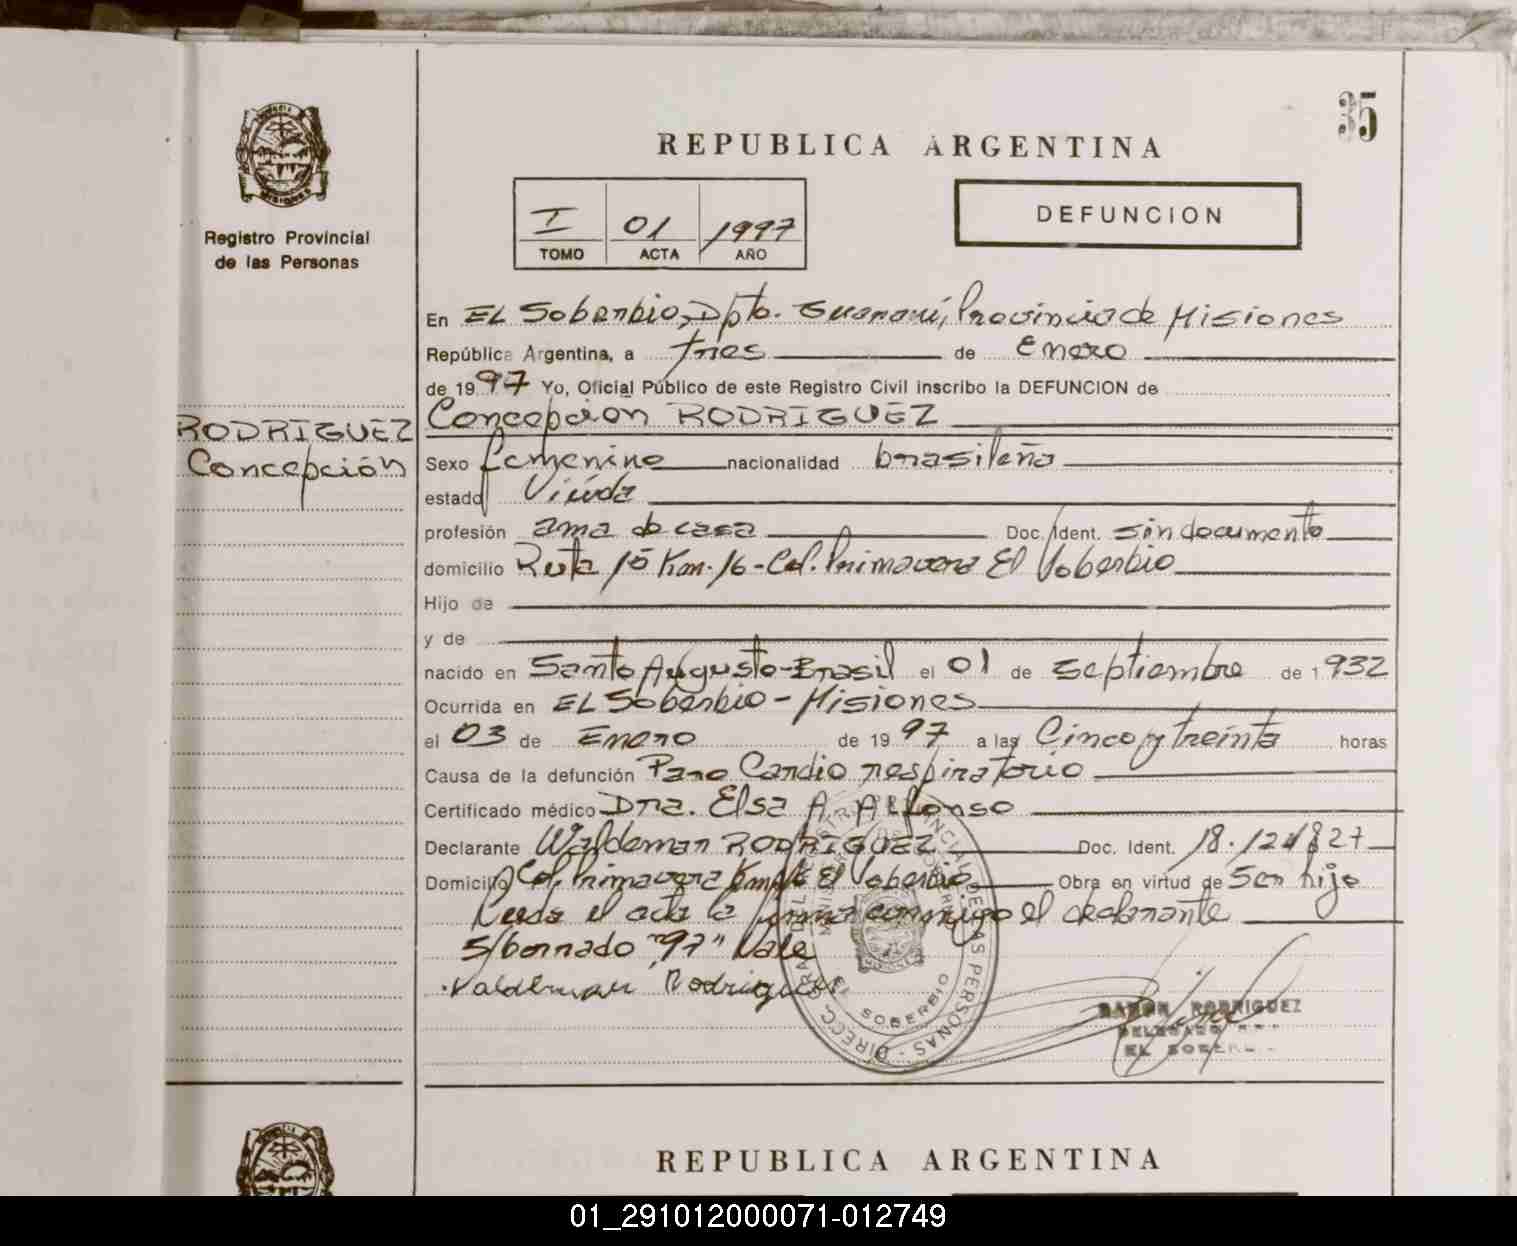 35
REPUBLICA ARGENTINA
I 01 1997
TOMO ACTA AÑO
DEFUNCION
MISIONES
Registro Provincial
de las Personas
RODRIGUEZ
Concepción
En EL Soberbio, Dpto. Guaraní, Provincia de Misiones
República Argentina, a tres de Enero
de 1997 Yo, Oficial Público de este Registro Civil inscribo la DEFUNCION de
Concepcion RODRIGUEZ
Sexo femenino nacionalidad brasileña
estado Viuda
profesión ama de casa Doc. Ident. sin documento
domicilio Ruta 15 Km. 16 - Col. Primavera El Soberbio
Hijo de
y de
nacido en Santo Augusto - Brasil el 01 de septiembre de 1932
Ocurrida en EL Soberbio - Misiones
el 03 de Enero de 1997 a las Cinco y treinta horas
Causa de la defunción Paro Cardio respiratorio
Certificado médico Dra. Elsa A. Alfonso
Declarante Waldemar RODRIGUEZ Doc. Ident.
Domicilio Col. Primavera El Soberbio Obra en virtud de Ser hijo
Leida el acta la firma conmigo el declarante
S/borrado "97" Vale
Valdemar Rodrigues
DIRECC. GRAL. DEL REGISTRO PROVINCIAL DE LAS PERSONAS
EL SOBERBIO
RAMON RODRIGUEZ
DELEGADO
EL SOBERBIO
REPUBLICA ARGENTINA
01_291012000071-012749